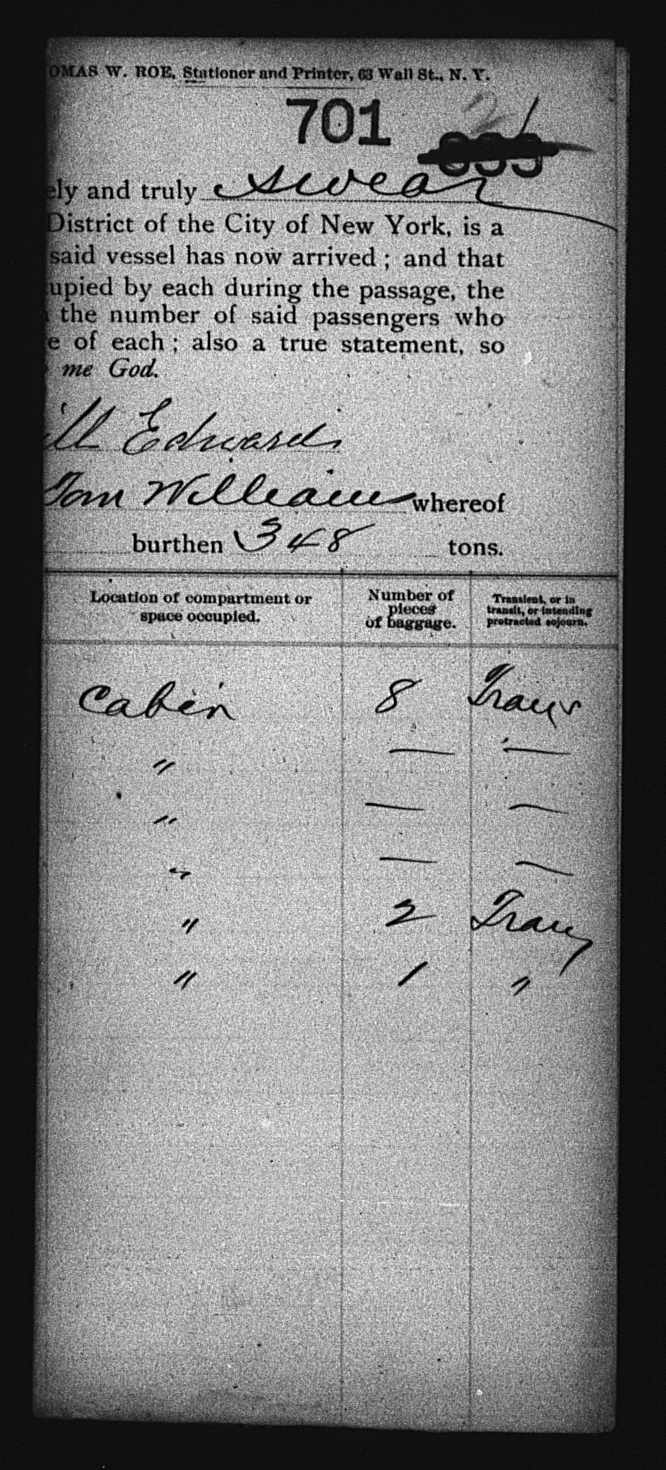 OMAS W. ROE, Stationer and Printer, 63 Wall St., N. Y.
701
ely and truly swear
District of the City of New York, is a
said vessel has now arrived ; and that
upied by each during the passage, the
the number of said passengers who
e of each ; also a true statement, so
me God.
ill Edwards
Tom William whereof
burthen 348 tons.
Location of compartment or space occupied. Number of pieces of baggage. Transient, or in transit, or intending protracted sojourn.
Cabin 8 Trans
" — —
" — —
" — —
" 2 Trans
" 1 "